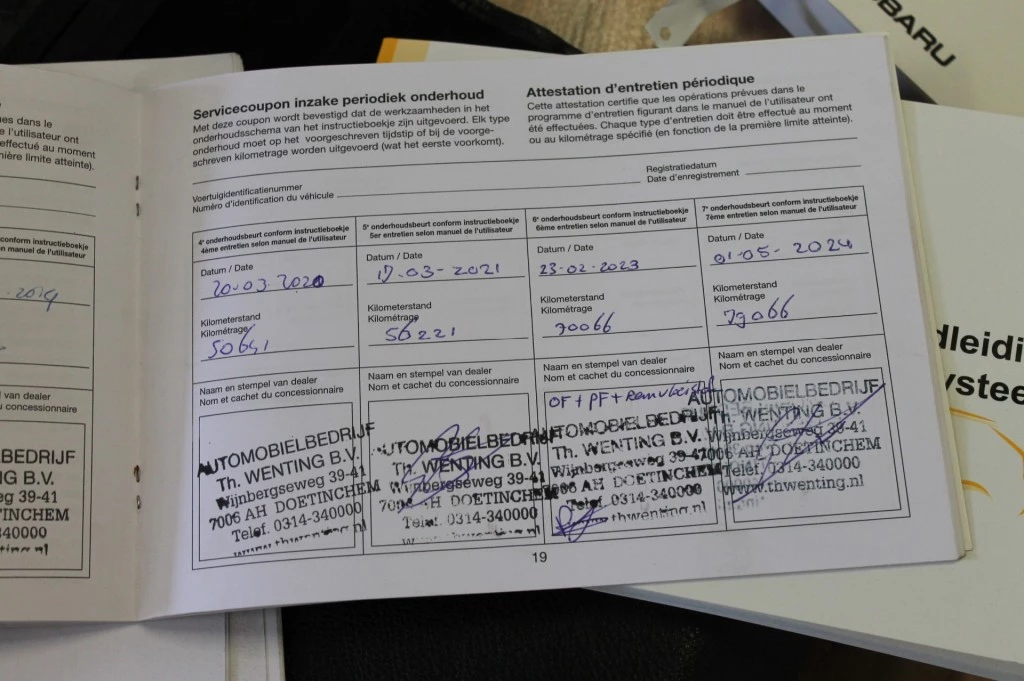 SUBARU
ues dans le
l'utilisateur ont
effectué au moment
mière limite atteinte).
conform instructieboekje
n manuel de l'utilisateur
2019
van dealer
du concessionnaire
OBIELBEDRIJF
NG B.V.
eg 39-41
TINCHEM
340000
nting.nl
Servicecoupon inzake periodiek onderhoud
Met deze coupon wordt bevestigd dat de werkzaamheden in het
onderhoudsschema van het instructieboekje zijn uitgevoerd. Elk type
onderhoud moet op het voorgeschreven tijdstip of bij de voorge-
schreven kilometrage worden uitgevoerd (wat het eerste voorkomt).
Attestation d'entretien périodique
Cette attestation certifie que les opérations prévues dans le
programme d'entretien figurant dans le manuel de l'utilisateur ont
été effectuées. Chaque type d'entretien doit être effectué au moment
ou au kilométrage spécifié (en fonction de la première limite atteinte).
Voertuigidentificatienummer
Numéro d'identification du véhicule
Registratiedatum
Date d'enregistrement
4e onderhoudsbeurt conform instructieboekje
4ème entretien selon manuel de l'utilisateur
Datum / Date
20-03-2020
Kilometerstand
Kilométrage
50641
Naam en stempel van dealer
Nom et cachet du concessionnaire
AUTOMOBIELBEDRIJF
Th. WENTING B.V.
Wijnbergseweg 39-41
7006 AH DOETINCHEM
Telef. 0314-340000
www.thwenting.nl
5e onderhoudsbeurt conform instructieboekje
5er entretien selon manuel de l'utilisateur
Datum / Date
17-03-2021
Kilometerstand
Kilométrage
56221
Naam en stempel van dealer
Nom et cachet du concessionnaire
AUTOMOBIELBEDRIJF
Th. WENTING B.V.
Wijnbergseweg 39-41
7006 AH DOETINCHEM
Telef. 0314-340000
6e onderhoudsbeurt conform instructieboekje
6ème entretien selon manuel de l'utilisateur
Datum / Date
23-02-2023
Kilometerstand
Kilométrage
70066
Naam en stempel van dealer
Nom et cachet du concessionnaire
OF + PF + Remvloeistof
AUTOMOBIELBEDRIJF
Th. WENTING B.V.
Wijnbergseweg 39-41
7006 AH DOETINCHEM
Telef. 0314-340000
thwenting.nl
7e onderhoudsbeurt conform instructieboekje
7ème entretien selon manuel de l'utilisateur
Datum / Date
01-05-2024
Kilometerstand
Kilométrage
79066
Naam en stempel van dealer
Nom et cachet du concessionnaire
AUTOMOBIELBEDRIJF
Th. WENTING B.V.
Wijnbergseweg 39-41
7006 AH DOETINCHEM
Telef. 0314-340000
www.thwenting.nl
19
dleidi
ystee